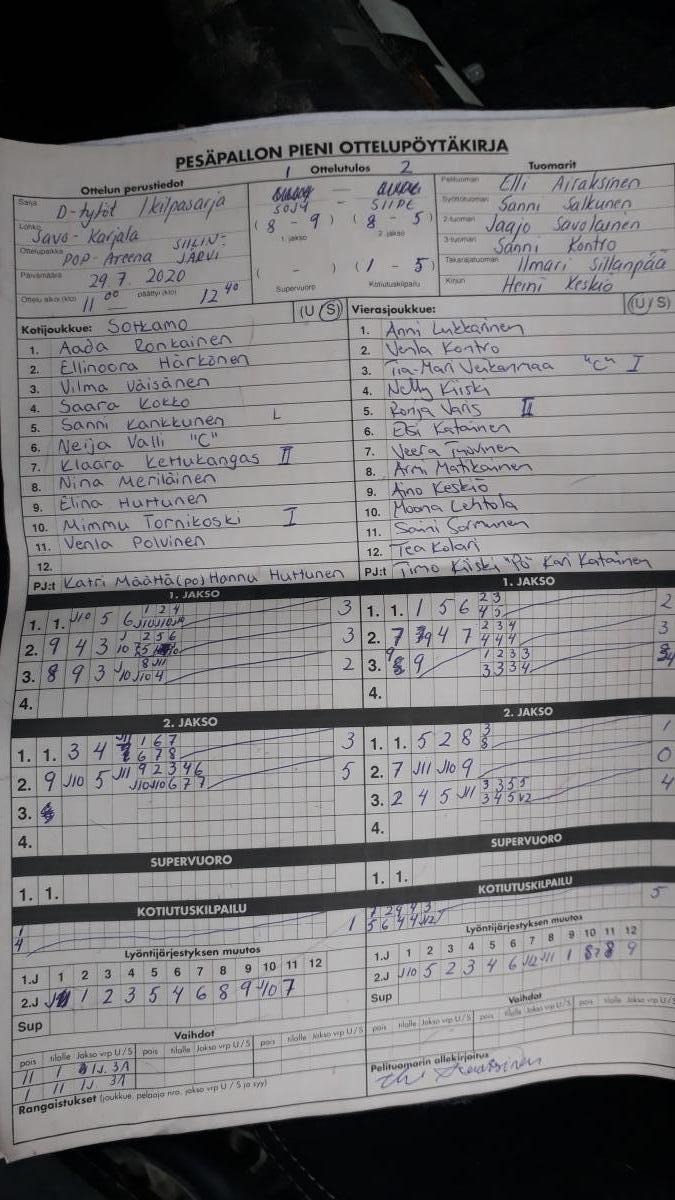 PESÄPALLON PIENI OTTELUPÖYTÄKIRJA
Ottelun perustiedot
Sarja D-tytöt 1 kilpasarja
Lohko Savo-Karjala
Ottelupaikka POP-Areena SIILINJÄRVI
Päivämäärä 29.7. 2020
Ottelu alkoi (klo) 11 00 päättyi (klo) 12 40
1 Ottelutulos 2
SOJY — SIIPE
( 8 - 9 ) ( 8 - 5 )
1. jakso 2. jakso
( - ) ( 1 - 5 )
Supervuoro Kotiutuskilpailu
Tuomarit
Pelituomari Elli Airaksinen
Syöttötuomari Sanni Salkunen
2-tuomari Jaajo Savolainen
3-tuomari Sanni Kontro
Takarajatuomari Ilmari Sillanpää
Kirjuri Heini Keskiö
Kotijoukkue: Sotkamo (U / S)
1. Aada Ronkainen
2. Ellinoora Härkönen
3. Vilma Väisänen
4. Saara Kokko
5. Sanni Kankkunen L
6. Neija Valli "C"
7. Klaara Kettukangas II
8. Nina Meriläinen
9. Elina Hurtunen
10. Mimmu Tornikoski I
11. Venla Polvinen
12.
PJ:t Katri Määttä (po) Hannu Huttunen
Vierasjoukkue: (U / S)
1. Anni Lukkarinen
2. Venla Kontro
3. Tia-Mari Venkanmaa "C" I
4. Nelly Kiiski
5. Ronja Varis II
6. Elsi Katainen
7. Veera Tyrvinen
8. Armi Matikainen
9. Aino Keskiö
10. Moona Lehtola
11. Saini Sormunen
12. Tea Kolari
PJ:t Timo Kiiski "Po" Kari Katainen
1. JAKSO
1. 1. J10 5 6 3
2. 9 4 3 3
3. 8 9 3 2
4.
1. JAKSO
1. 1. 1 5 6 2
2. 7 4 7 3
3. 9 4
4.
2. JAKSO
1. 1. 3 4 3
2. 9 J10 5 J11 5
3.
4.
2. JAKSO
1. 1. 5 2 8 1
2. 7 J11 J10 9 0
3. 2 4 5 J11 4
4.
SUPERVUORO
1. 1.
SUPERVUORO
1. 1.
KOTIUTUSKILPAILU
1
4 1
KOTIUTUSKILPAILU
5
Lyöntijärjestyksen muutos
1.J 1 2 3 4 5 6 7 8 9 10 11 12
2.J 1 2 3 5 4 6 8 9 J10 7
Sup
Lyöntijärjestyksen muutos
1.J 1 2 3 4 5 6 7 8 9 10 11 12
2.J J10 5 2 3 4 6 J12 J11 1 8 9
Sup
Vaihdot
pois tilalle Jakso vrp U / S pois tilalle Jakso vrp U / S pois tilalle Jakso vrp U / S
11 1 1J. 3A
1 11 1J 3A
Vaihdot
pois tilalle Jakso vrp U / S pois tilalle Jakso vrp U / S pois tilalle Jakso vrp U / S
Rangaistukset (joukkue, pelaaja nro, jakso vrp U / S ja syy)
Pelituomarin allekirjoitus